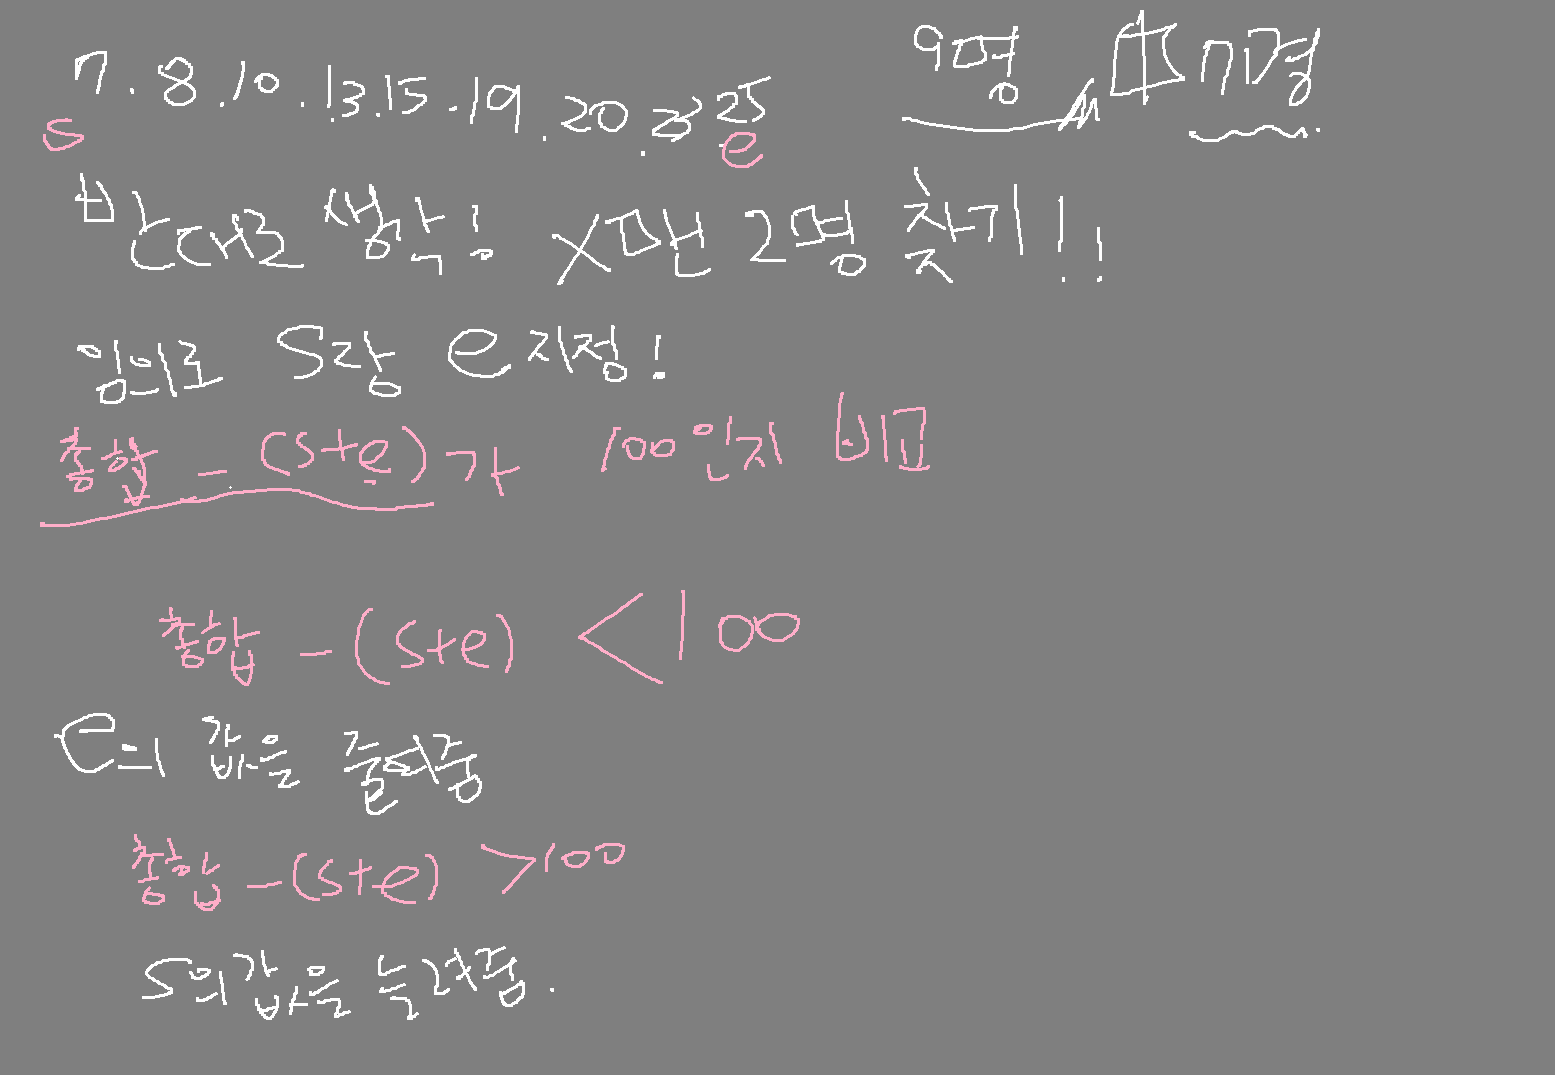 7. 8. 10. 13. 15. 19. 20. 23 25
s e
9명 中 7명
반대로 생각! X맨 2명 찾기!!
임의로 s랑 e 지정!
총합 - (s+e)가 100인지 비교
총합 - (s+e) < 100
e의 값을 줄여줌
총합 - (s+e) > 100
s의 값을 늘려줌.